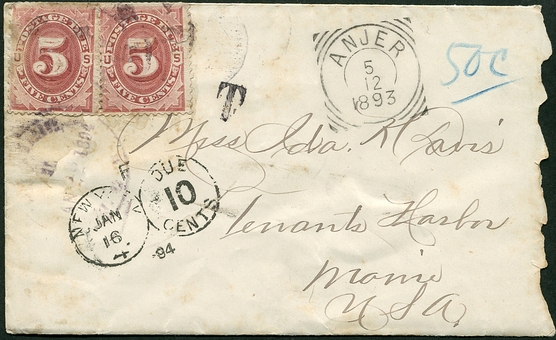 POSTAGE DUE POSTAGE DUE
U 5 S U 5 S
FIVE CENTS FIVE CENTS
ANJER
5
12
1893
50c
T
Miss Ida K Davis
Tenants Harbor
Maine
U.S.A.
NEW
JAN
16
4
DUE
10
CENTS
94